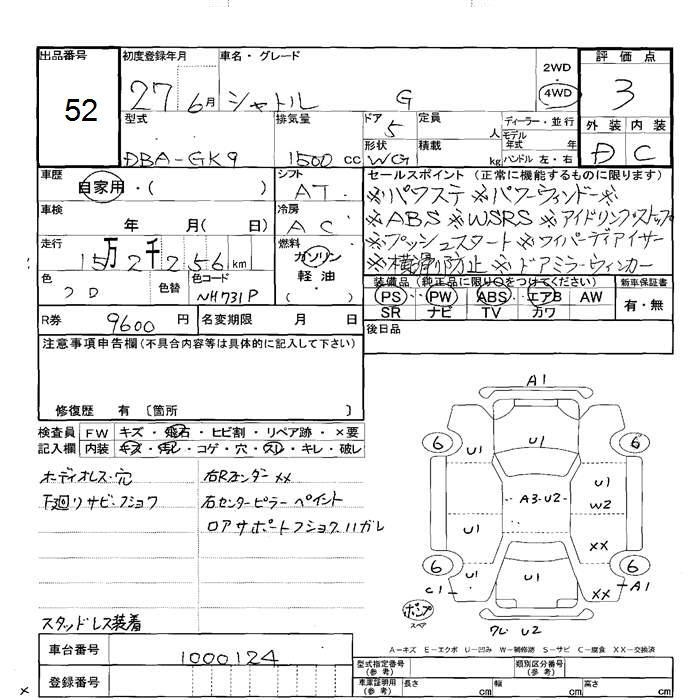 出品番号 初度登録年月 車名・グレード 2WD 評価点
52 27 6月 シャトル G 4WD 3
型式 排気量 ドア 定員 ディーラー・並行 外装 内装
5 人 モデル年式 年
DBA-GK9 1500 cc 形状 WG 積載 kg ハンドル 左・右 D C
車歴 自家用・( ) シフト AT セールスポイント (正常に機能するものに限ります)
※パワステ ※パワーウィンドー※
車検 年 月( 日) 冷房 AC ※ABS ※WSRS ※アイドリングストップ
走行 15万2千256km 燃料 ガソリン ※プッシュスタート ※ワイパーディアイサー
色 色替 色コード NH731P 軽油 ( ) ※横滑り防止 ※ドアミラーウィンカー
装備品 (純正品に限り○をつけてください) 新車保証書
PS PW ABS エアB AW 有・無
R券 9600円 名変期限 月 日 SR ナビ TV カワ
注意事項申告欄(不具合内容等は具体的に記入して下さい) 後日品
修復歴 有 〔箇所 〕
検査員 FW キズ・飛石・ヒビ割・リペア跡・×要
記入欄 内装 キズ・汚レ・コゲ・穴・スレ・キレ・破レ
オーディオレス・穴 右Rフェンダー ××
下廻リサビ・フショク 右センターピラー ペイント
ロアサポートフショク ハガレ
スタッドレス装着
A1
6 U1 U1 6
U1
A3・U2 W2
U1 XX
6 U1 U1 XX 6
C1 A1
ポンプ
スペア
ワレ U2
A-キズ E-エクボ U-凹み W-補修跡 S-サビ C-腐食 XX-交換済
車台番号 1000124 型式指定番号(参考) 類別区分番号(参考)
登録番号 車庫証明用(参考) 長さ cm 幅 cm 高さ cm